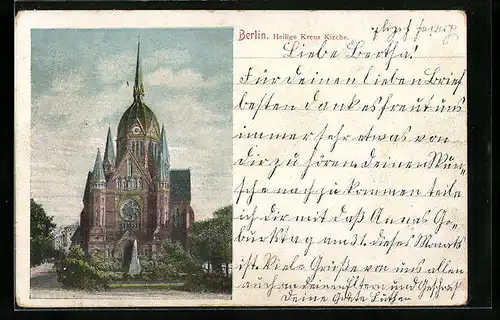 Berlin. Heilige Kreuz Kirche.
Liebe Bertha!
Für deinen lieben Brief
besten Dank es freut uns
immer sehr etwas von
dir zu hören. deinen Wun-
sche nachzukommen teile
ich dir mit daß Annas Ge-
burtstag am 31. dieses Monats
ist. Viele Grüße von uns allen
auch an deine Eltern und
Deine